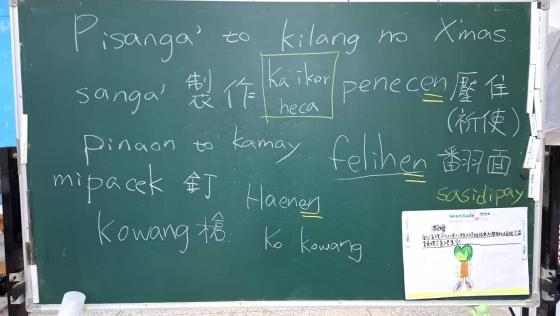 Pisanga' to kilang no X'mas.
sanga' 製作 ka ikor heca penecen 壓住
(祈使)
pinaon to kamay felihen 翻面
mipacek 釘 Haenen sasidipay
kowang 槍 ko kowang